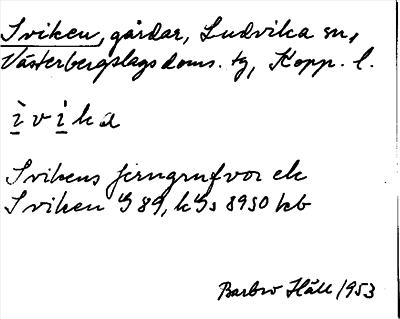 Iviken, gårdar, Ludvika sn,
Västerbergslags doms. tg, Kopp. l.
ìvìka
Ivikens jerngrufvor ek
Iviken G 89, kGs 8950 kb
Barbro Häll 1953